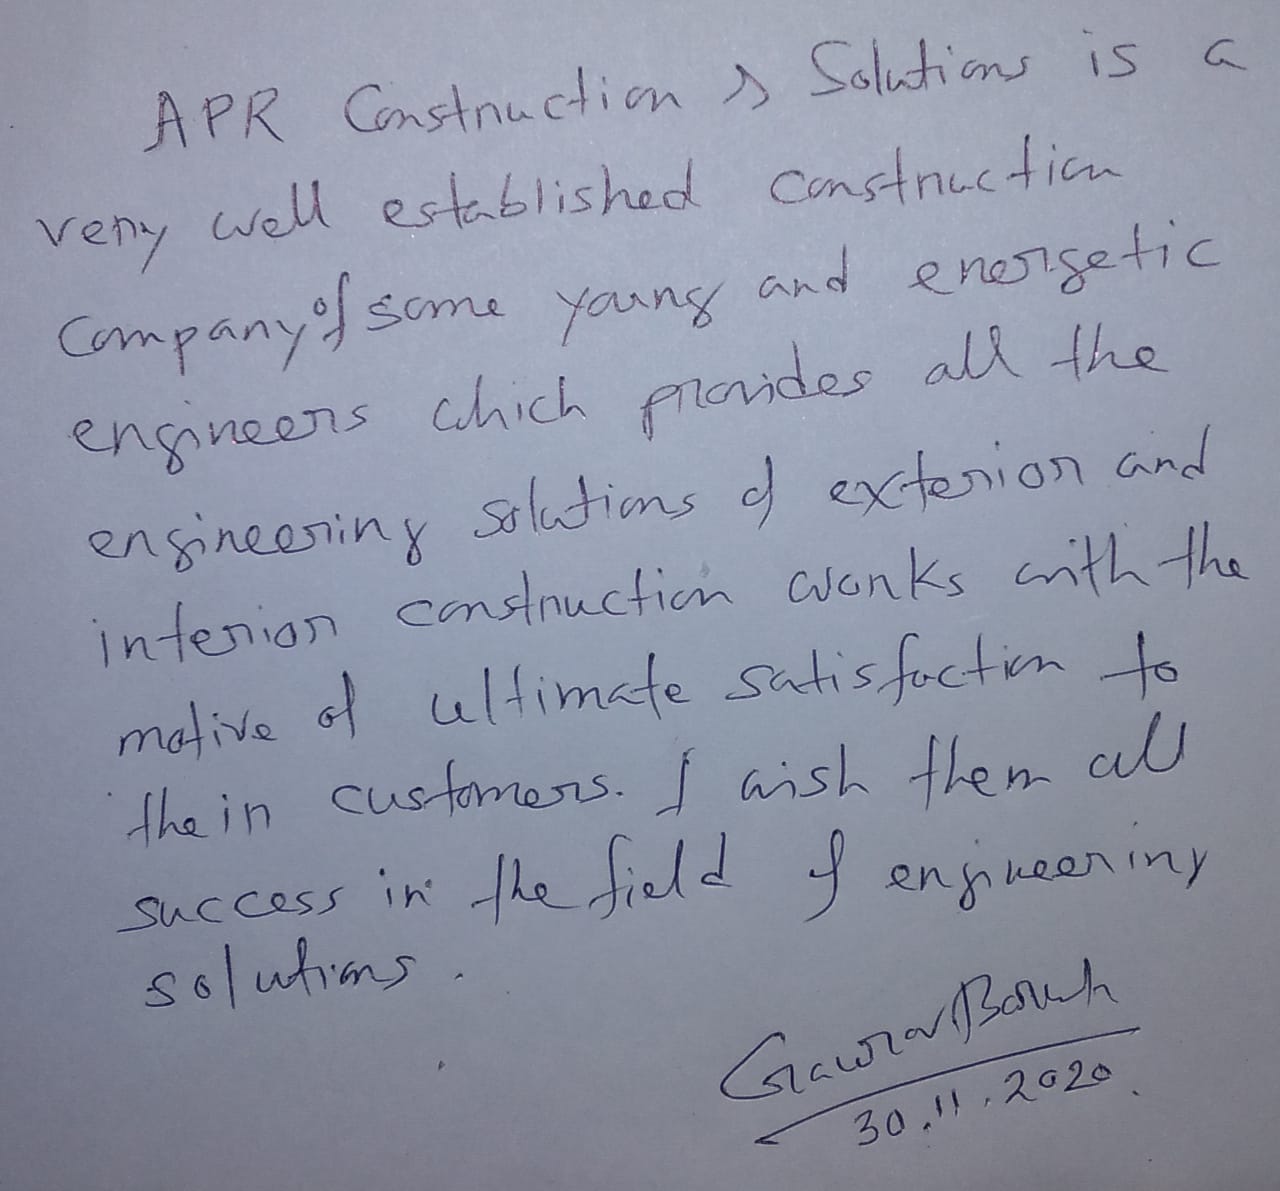 APR Construction & Solutions is a
very well established construction
company of some young and energetic
engineers which provides all the
engineering solutions of exterior and
interior construction works with the
motive of ultimate satisfaction to
their customers. I wish them all
success in the field of engineering
solutions.
Gaurav Boruah
30.11.2020.